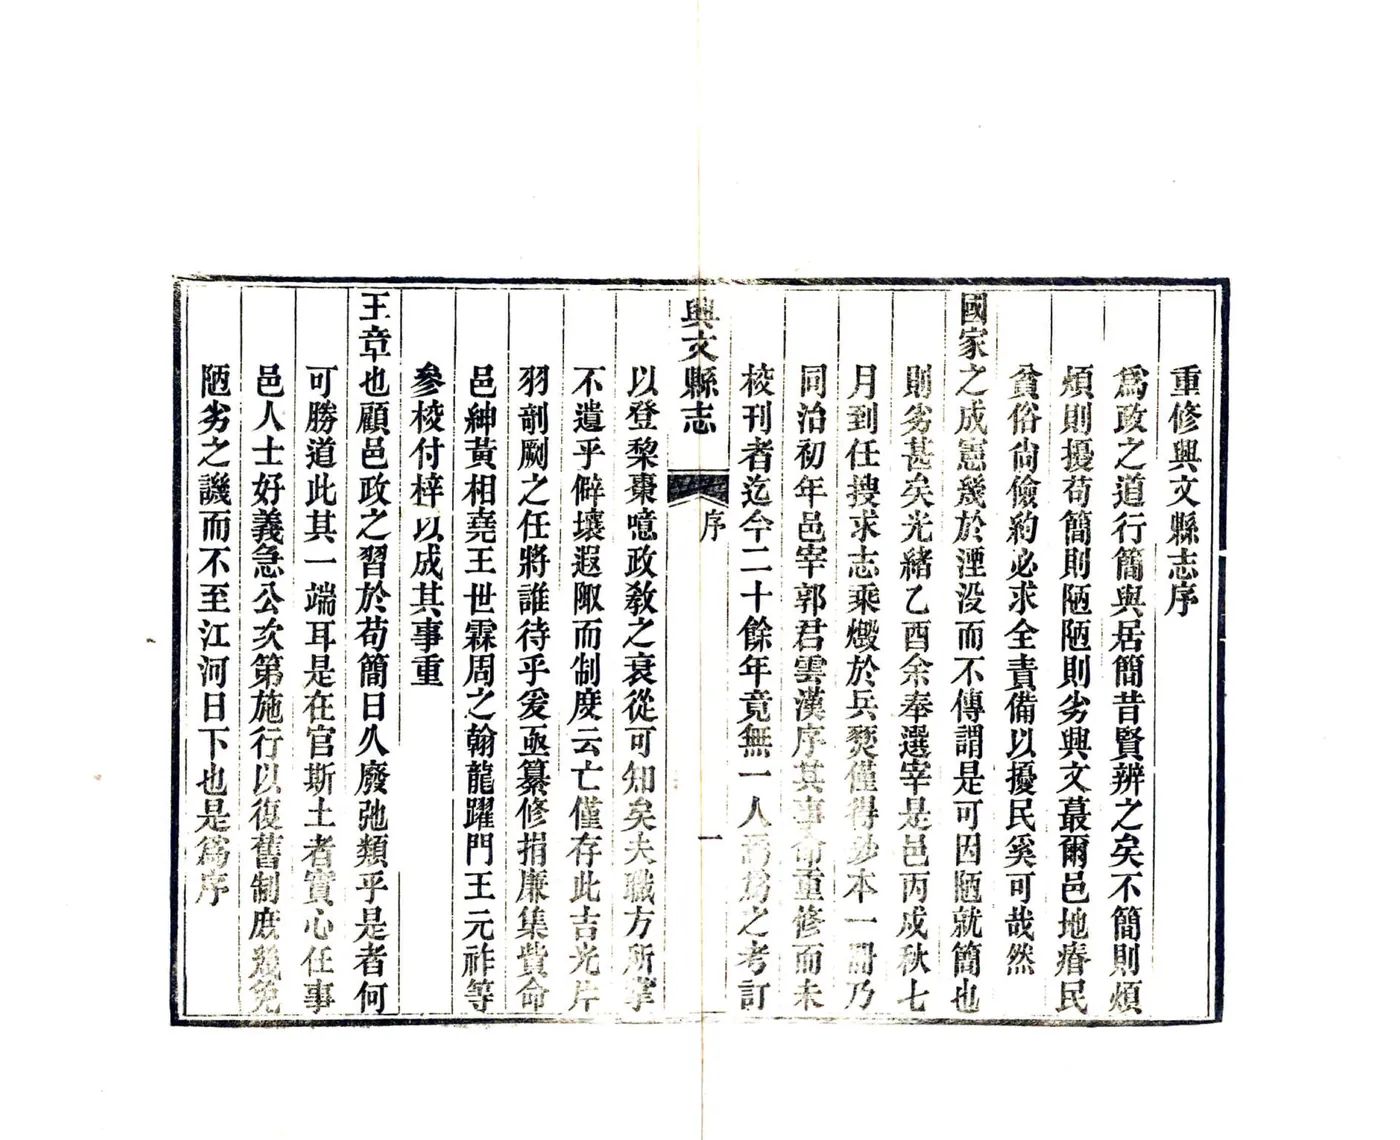 重修興文縣志序
爲政之道行簡與居簡昔賢辨之矣不簡則煩
煩則擾苟簡則陋陋則劣興文蕞爾邑地瘠民
貧俗尙儉約必求全責備以擾民奚可哉然
國家之成憲幾於湮沒而不傳謂是可因陋就簡也
則劣甚矣光緒乙酉余奉選宰是邑丙戌秋七
月到任搜求志乘燬於兵燹僅得鈔本一冊乃
同治初年邑宰郭君雲漢序其事命重修而未
校刊者迄今二十餘年竟無一人焉爲之考訂
興文縣志
序
一
以登棃棗噫政敎之衰從可知矣夫職方所掌
不遺乎僻壤遐陬而制度云亡僅存此吉光片
羽剞劂之任將誰待乎爰亟纂修捐廉集貲命
邑紳黃相堯王世霖周之翰龍躍門王元祚等
參校付梓以成其事重
王章也顧邑政之習於苟簡日久廢弛類乎是者何
可勝道此其一端耳是在官斯土者實心任事
邑人士好義急公次第施行以復舊制庶幾免
陋劣之譏而不至江河日下也是爲序